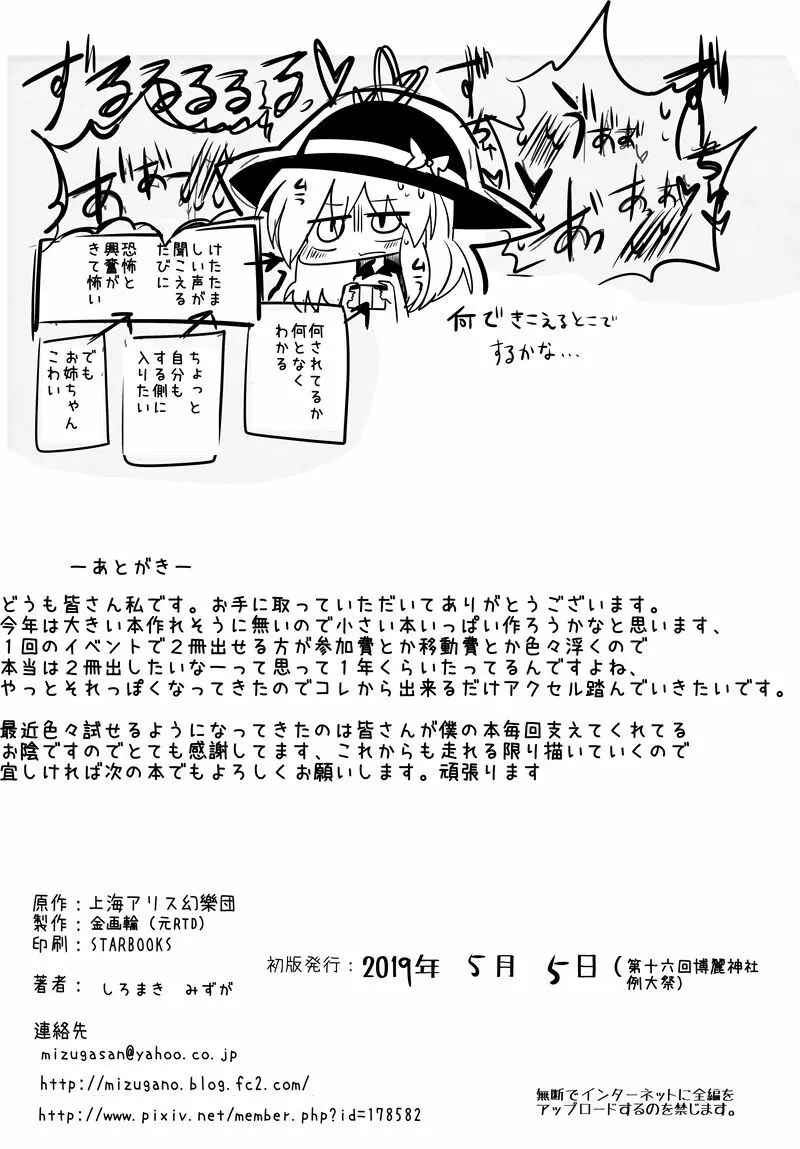 ずるるるるる♡
ず
ち
う
あぁ
ず
ちゅ
あぁ♡
あぁー
けたたま
しい声が
聞こえる
たびに
恐怖と
興奮が
きて怖い
何されてるか
何となく
わかる
ちょっと
自分も
する側に
入りたい
でも
お姉ちゃん
こわい
何できこえるとこで
するかな…
ーあとがきー
どうも皆さん私です。お手に取っていただいてありがとうございます。
今年は大きい本作れそうに無いので小さい本いっぱい作ろうかなと思います、
１回のイベントで２冊出せる方が参加費とか移動費とか色々浮くので
本当は２冊出したいなーって思って１年くらいたってるんですよね、
やっとそれっぽくなってきたのでコレから出来るだけアクセル踏んでいきたいです。
最近色々試せるようになってきたのは皆さんが僕の本毎回支えてくれてる
お陰ですのでとても感謝してます、これからも走れる限り描いていくので
宜しければ次の本でもよろしくお願いします。頑張ります
原作：上海アリス幻樂団
製作：金画輪（元RTD）
印刷：STARBOOKS
著者： しろまき みずが
初版発行：2019年 5月 5日（第十六回博麗神社
例大祭）
連絡先
mizugasan@yahoo.co.jp
http://mizugano.blog.fc2.com/
http://www.pixiv.net/member.php?id=178582
無断でインターネットに全編を
アップロードするのを禁じます。